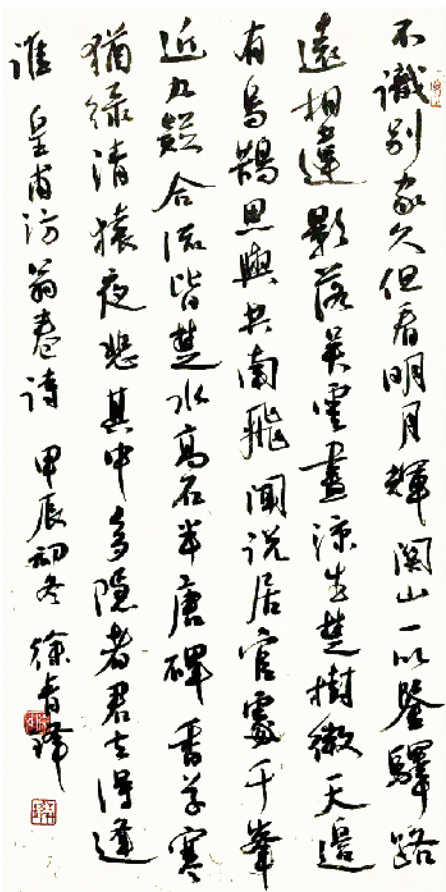 不識別家久但看明月輝関山一以鑒驛路
遠相違影落吳雲盡涼生楚樹微天邊
有烏鵲思與共南飛聞说居官處千峯
近九疑合流皆楚水高石半唐碑香草寒
猶綠清猿夜悲其中多隱者君去得逢
誰 皇甫汸翁卷诗 甲辰初冬 徐